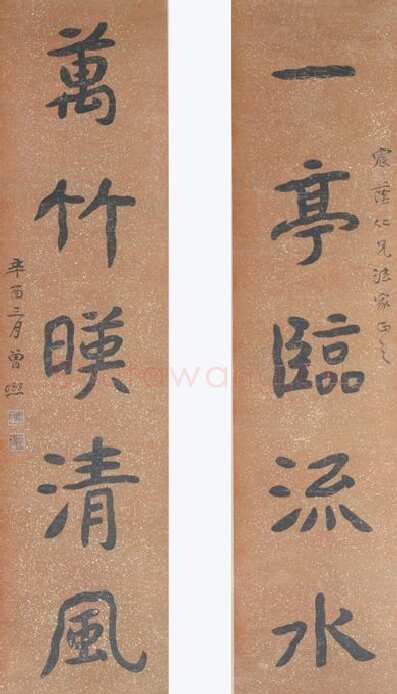 宸蔭仁兄法家正之
一亭臨流水
萬竹暎清風
辛酉三月曾熙